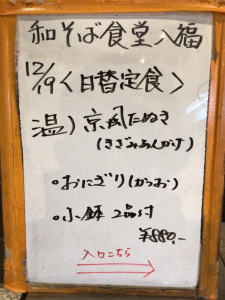 和そば食堂 八福
12/19〈日替定食〉
温)京風たぬき
(きざみあんかけ)
・おにぎり(かつお)
・小鉢 2品付
¥880.-
入口こちら